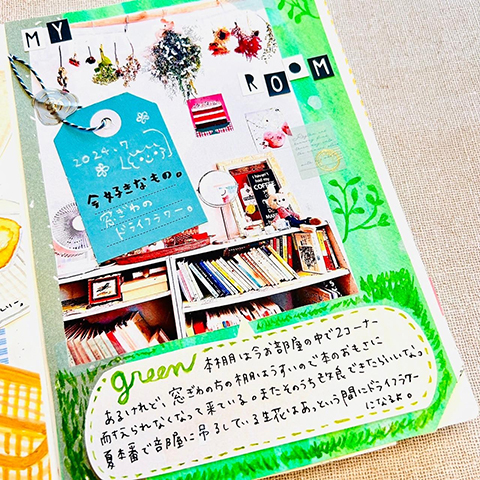 MY
ROOM
2024.7
今好きなもの。
窓ぎわの
ドライフラワー。
I haven't
had my
COFFEE
green 本棚は今お部屋の中で2コーナー
あるけれど、窓ぎわの方の棚はうすいので本のおもさに
耐えられなくなって来ている。またそのうち改良できたらいいな。
夏本番で部屋に吊るしている生花はあっという間にドライフラワー
になるよ。